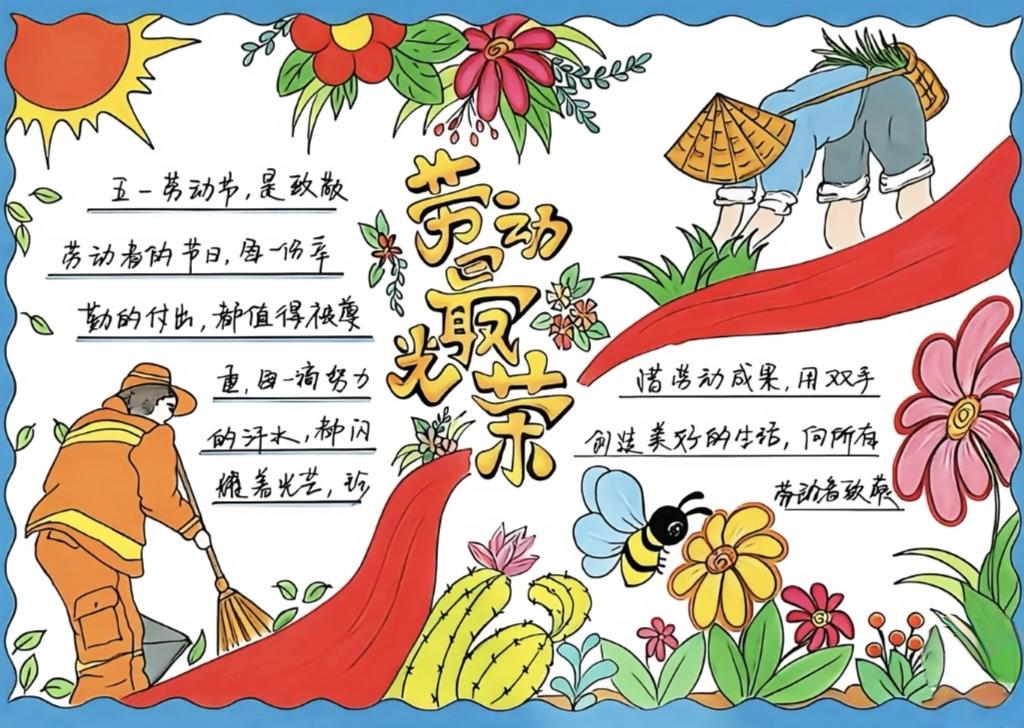 劳动
最
光
荣
五一劳动节，是致敬
劳动者的节日，每一份辛
勤的付出，都值得被尊
重，每一滴努力
的汗水，都闪
耀着光芒，珍
惜劳动成果，用双手
创造美好的生活，向所有
劳动者致敬